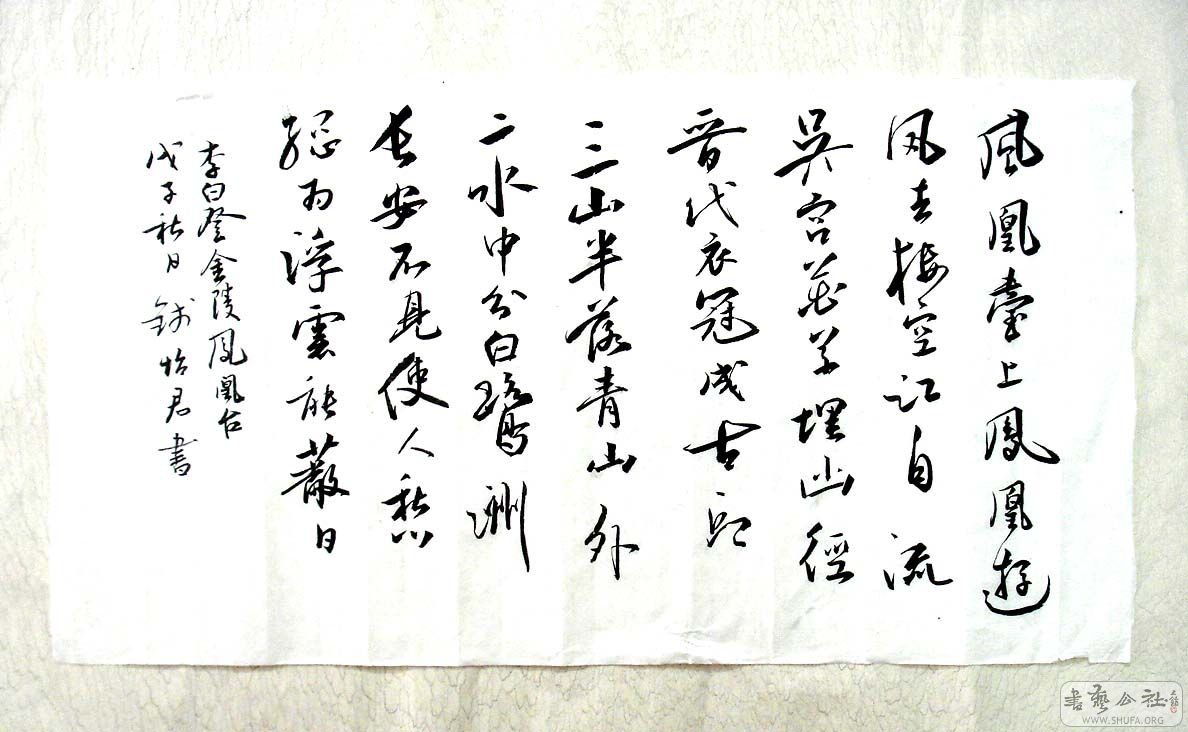 鳳凰臺上鳳凰遊
凤去楼空江自流
吳宮花草埋幽徑
晉代衣冠成古丘
三山半落青山外
二水中分白鷺洲
長安不見使人愁
總为浮雲能蔽日
李白登金陵鳳凰台
戊子秋日 錢怡君書
書藝公社
WWW.SHUFA.ORG